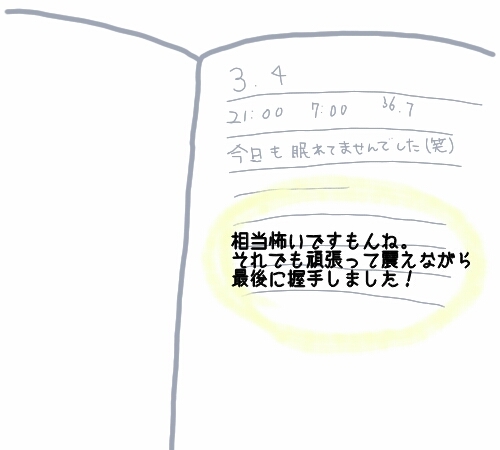 3.4
21:00 7:00 36.7
今日も眠れてませんでした(笑)
相当怖いですもんね。
それでも頑張って震えながら
最後に握手しました！